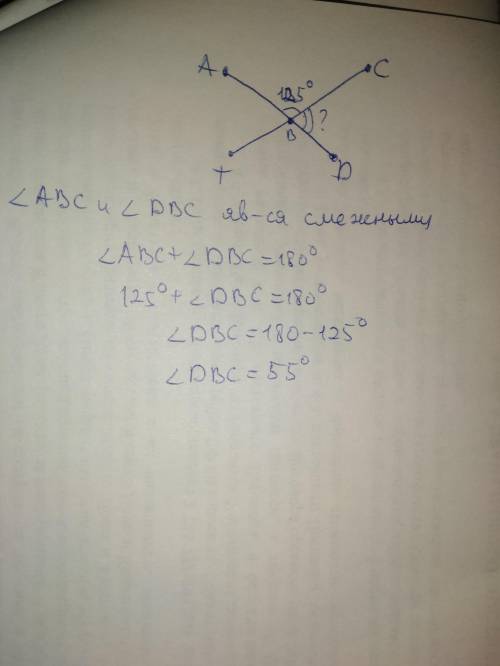 A C
125°
B ?
T D
∠ABC и ∠DBC яв-ся смежными
∠ABC+∠DBC=180°
125°+∠DBC=180°
∠DBC=180-125°
∠DBC=55°